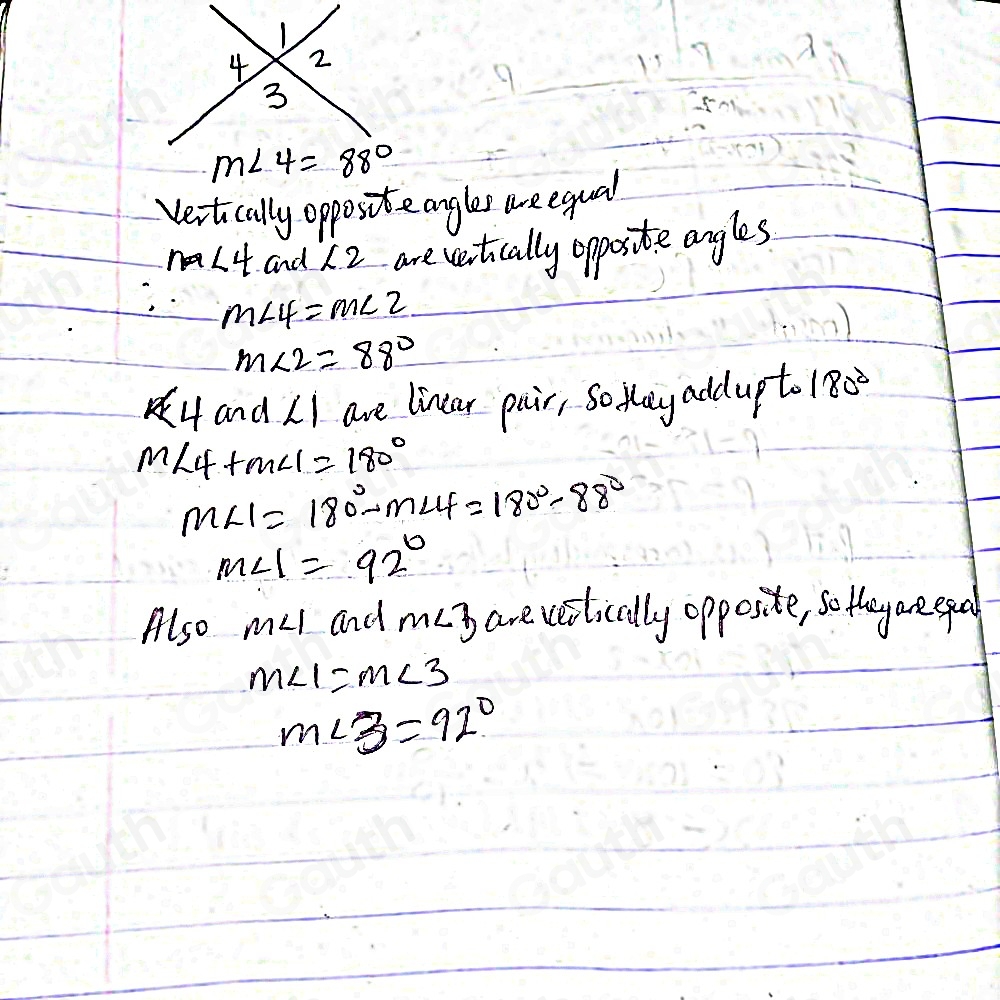 1
4 2
3
m∠4 = 88°
Vertically opposite angles are equal
m∠4 and ∠2 are vertically opposite angles.
∴ m∠4 = m∠2
m∠2 = 88°
∠4 and ∠1 are linear pair, so they add up to 180°
m∠4 + m∠1 = 180°
m∠1 = 180° - m∠4 = 180° - 88°
m∠1 = 92°
Also m∠1 and m∠3 are vertically opposite, so they are equa
m∠1 = m∠3
m∠3 = 92°